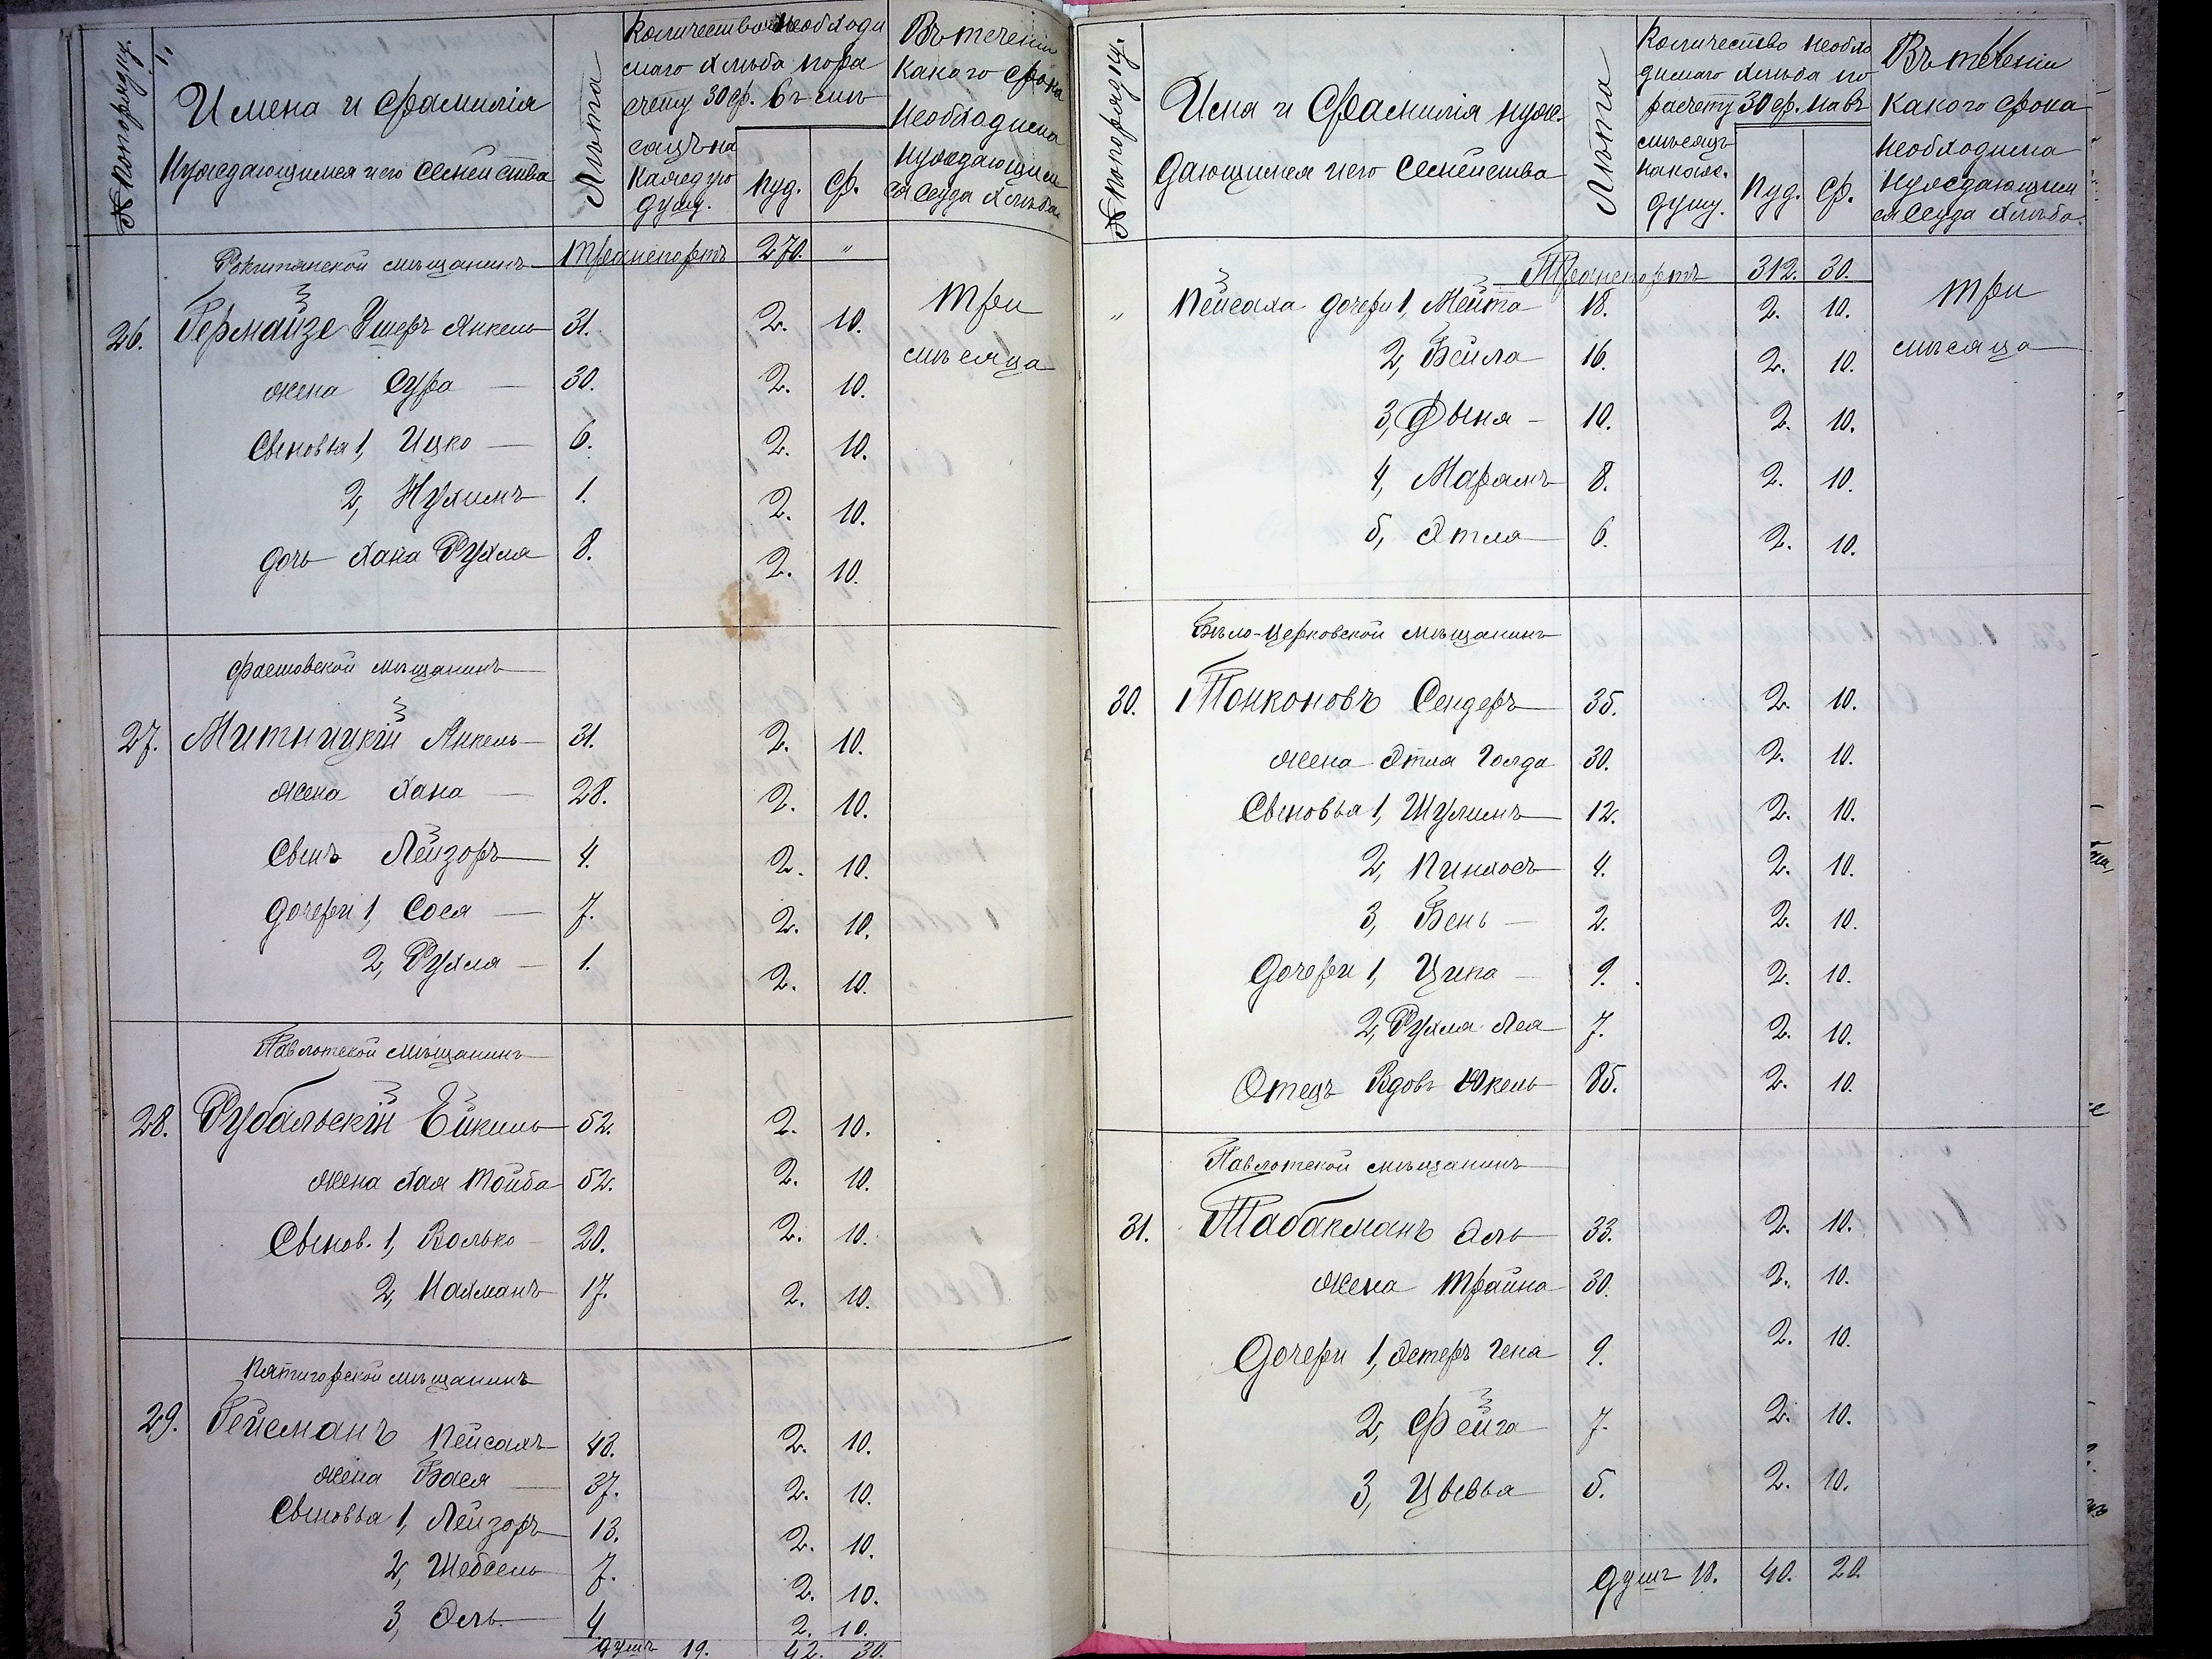 № по порядку.
Имена и фамилія
Нуждающимся и его семейства
Лѣта
Количество необходи
маго хлѣба по ра
счету 30 ф. въ мѣ
сяцъ на
каждую
душу.
пуд. ф.
Въ теченіи
какого срока
необходима
нуждающим
ся ссуда хлѣба
Рокитянской мѣщанинъ Транспортъ 270. "
26. Гермайзе Ушеръ Янкель 31. 2. 10. Три
жена Сура 30. 2. 10. мѣсяца
Сыновья 1, Ицко 6. 2. 10.
2, Нухимъ 1. 2. 10.
дочь Хана Рухля 8. 2. 10.
Фастовской мѣщанинъ
27. Митницкій Янкель 31. 2. 10.
жена Хана 28. 2. 10.
Сынъ Лейзоръ 4. 2. 10.
дочери 1, Сося 7. 2. 10.
2, Рухля 1. 2. 10.
Паволотской мѣщанинъ
28. Рубальскій 52. 2. 10.
жена Хая Тойба 52. 2. 10.
Сынов. 1, Волько 20. 2. 10.
2, Нахманъ 17. 2. 10.
Пятигорской мѣщанинъ
29. Гейсманъ Пейсахъ 43. 2. 10.
жена Бася 37. 2. 10.
Сыновья 1, Лейзоръ 13. 2. 10.
2, Шебсель 7. 2. 10.
3, Эль 4. 2. 10.
душъ 19. 42. 30.
№ по порядку.
Имя и Фамилія нуж-
дающимся и его семейства
Лѣта
Количество необхо
димаго хлѣба по
расчету 30 ф. на въ
мѣсяцъ
на каж.
душу.
пуд. ф.
Въ теченіи
какого срока
необходима
нуждающим
ся ссуда хлѣба
Транспортъ 312. 30.
" Пейсаха дочери 1, Мейта 18. 2. 10. Три
2, Бейла 16. 2. 10. мѣсяца
3, Фыня 10. 2. 10.
4, Марямъ 8. 2. 10.
5, Этля 6. 2. 10.
Бѣло-Церковской мѣщанинъ
30. Тонконовъ Сендеръ 35. 2. 10.
жена Этля Голда 30. 2. 10.
Сыновья 1, Шулимъ 12. 2. 10.
2, Пинхосъ 4. 2. 10.
3, Бень 2. 2. 10.
Дочери 1, Ципа 9. 2. 10.
2, Рухля Лея 7. 2. 10.
Отецъ Вдовъ Юкель 85. 2. 10.
Паволотской мѣщанинъ
31. Табакманъ Эль 33. 2. 10.
жена Трайна 30. 2. 10.
Дочери 1, Эстеръ Гена 9. 2. 10.
2, Фейга 7. 2. 10.
3, Цывья 5. 2. 10.
душъ 18. 40. 20.